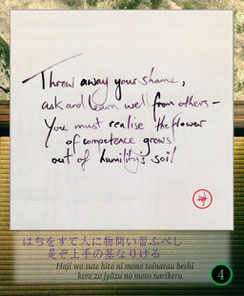 Throw away your shame,
ask and learn well from others –
You must realise the flower
of competence grows
out of humility's soil
はぢをすて人に物問い習ふべし
是ぞ上手の基なりける
Haji wo sute hito ni mono toinarau beshi
kore zo jyōzu no moto narikeru
4